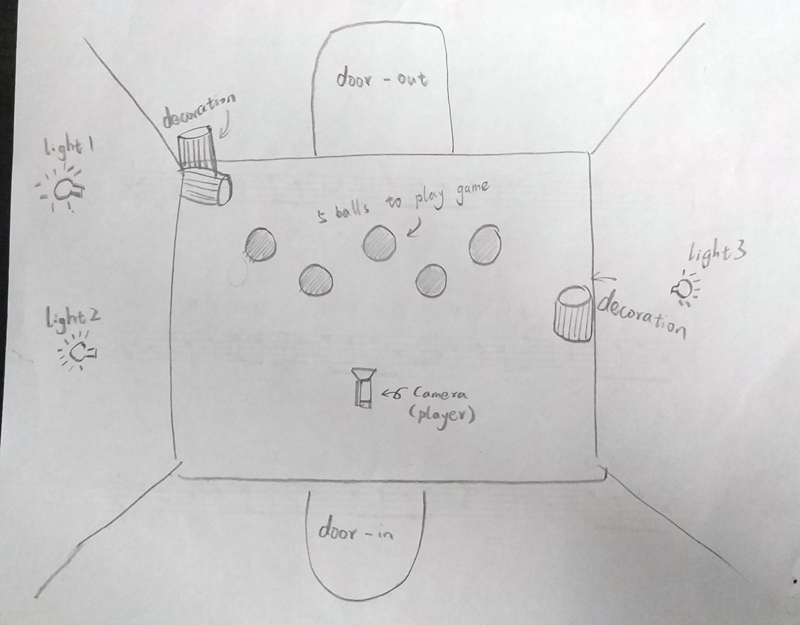 door - out
decoration
light 1
5 balls to play game
light 3
decoration
light 2
Camera
(player)
door - in